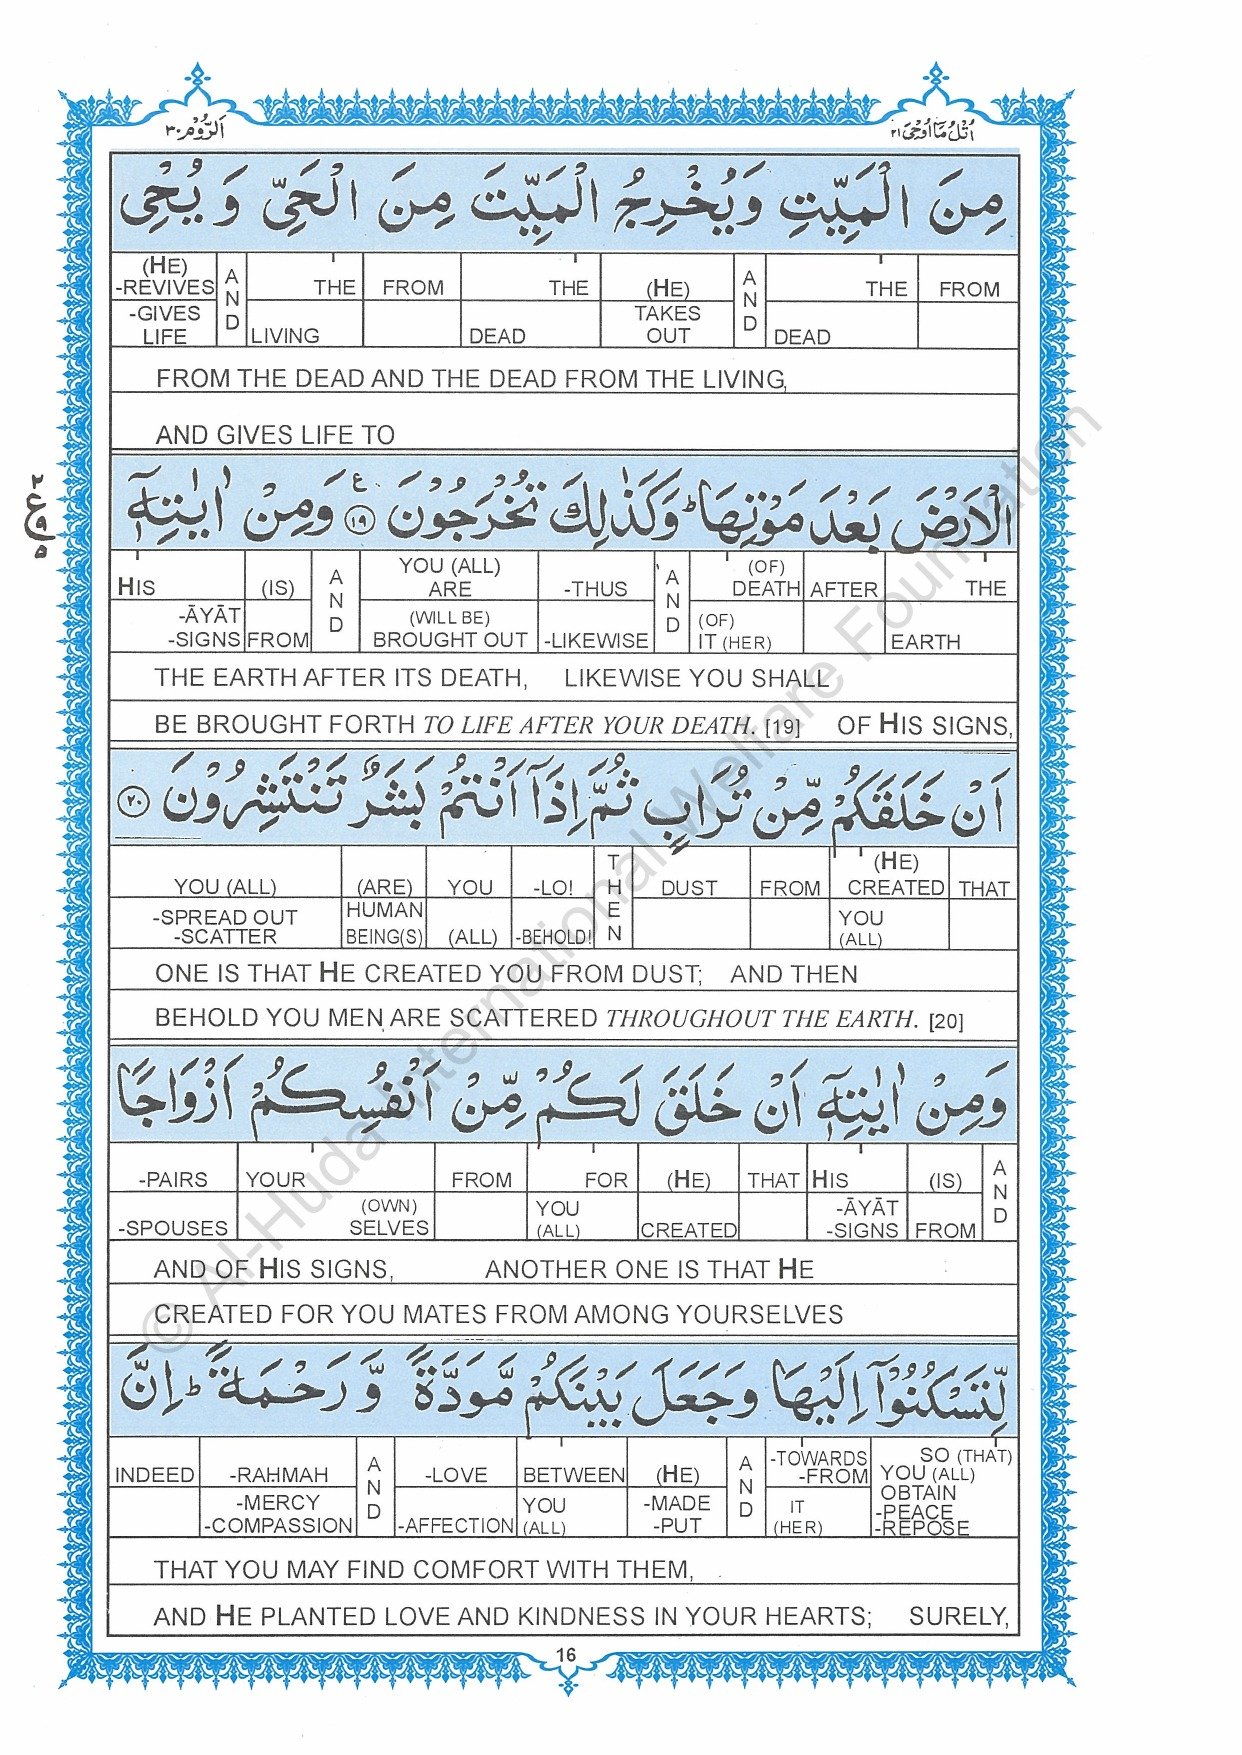 اَلرُّوْم ٣٠
اُتْلُ مَآ اُوْحِيَ ٢١
مِنَ الْمَيِّتِ وَيُخْرِجُ الْمَيِّتَ مِنَ الْحَيِّ وَ يُحْيِ
(HE) -REVIVES -GIVES LIFE | AND | THE LIVING | FROM | THE DEAD | (HE) TAKES OUT | AND | THE DEAD | FROM
FROM THE DEAD AND THE DEAD FROM THE LIVING,
AND GIVES LIFE TO
الْاَرْضَ بَعْدَ مَوْتِهَا ؕ وَكَذٰلِكَ تُخْرَجُوْنَ ﴿١٩﴾ ع وَمِنْ اٰيٰتِهٖۤ
٢
ع
٩
٥
HIS -ĀYĀT -SIGNS | (IS) FROM | AND | YOU (ALL) ARE (WILL BE) BROUGHT OUT | -THUS -LIKEWISE | AND | (OF) DEATH (OF) IT (HER) | AFTER | THE EARTH
THE EARTH AFTER ITS DEATH, LIKEWISE YOU SHALL
BE BROUGHT FORTH TO LIFE AFTER YOUR DEATH. [19] OF HIS SIGNS,
اَنْ خَلَقَكُمْ مِّنْ تُرَابٍ ثُمَّ اِذَاۤ اَنْتُمْ بَشَرٌ تَنْتَشِرُوْنَ ﴿٢٠﴾
YOU (ALL) -SPREAD OUT -SCATTER | (ARE) HUMAN BEING(S) | YOU (ALL) | -LO! -BEHOLD! | THEN | DUST | FROM | (HE) CREATED YOU (ALL) | THAT
ONE IS THAT HE CREATED YOU FROM DUST; AND THEN
BEHOLD YOU MEN ARE SCATTERED THROUGHOUT THE EARTH. [20]
وَمِنْ اٰيٰتِهٖۤ اَنْ خَلَقَ لَكُمْ مِّنْ اَنْفُسِكُمْ اَزْوَاجًا
-PAIRS -SPOUSES | YOUR (OWN) SELVES | FROM | FOR YOU (ALL) | (HE) CREATED | THAT | HIS -ĀYĀT -SIGNS | (IS) FROM | AND
AND OF HIS SIGNS, ANOTHER ONE IS THAT HE
CREATED FOR YOU MATES FROM AMONG YOURSELVES
لِّتَسْكُنُوْۤا اِلَيْهَا وَجَعَلَ بَيْنَكُمْ مَّوَدَّةً وَّ رَحْمَةً ؕ اِنَّ
INDEED | -RAHMAH -MERCY -COMPASSION | AND | -LOVE -AFFECTION | BETWEEN YOU (ALL) | (HE) -MADE -PUT | AND | -TOWARDS -FROM IT (HER) | SO (THAT) YOU (ALL) OBTAIN -PEACE -REPOSE
THAT YOU MAY FIND COMFORT WITH THEM,
AND HE PLANTED LOVE AND KINDNESS IN YOUR HEARTS; SURELY,
16
© Al-Huda International Welfare Foundation